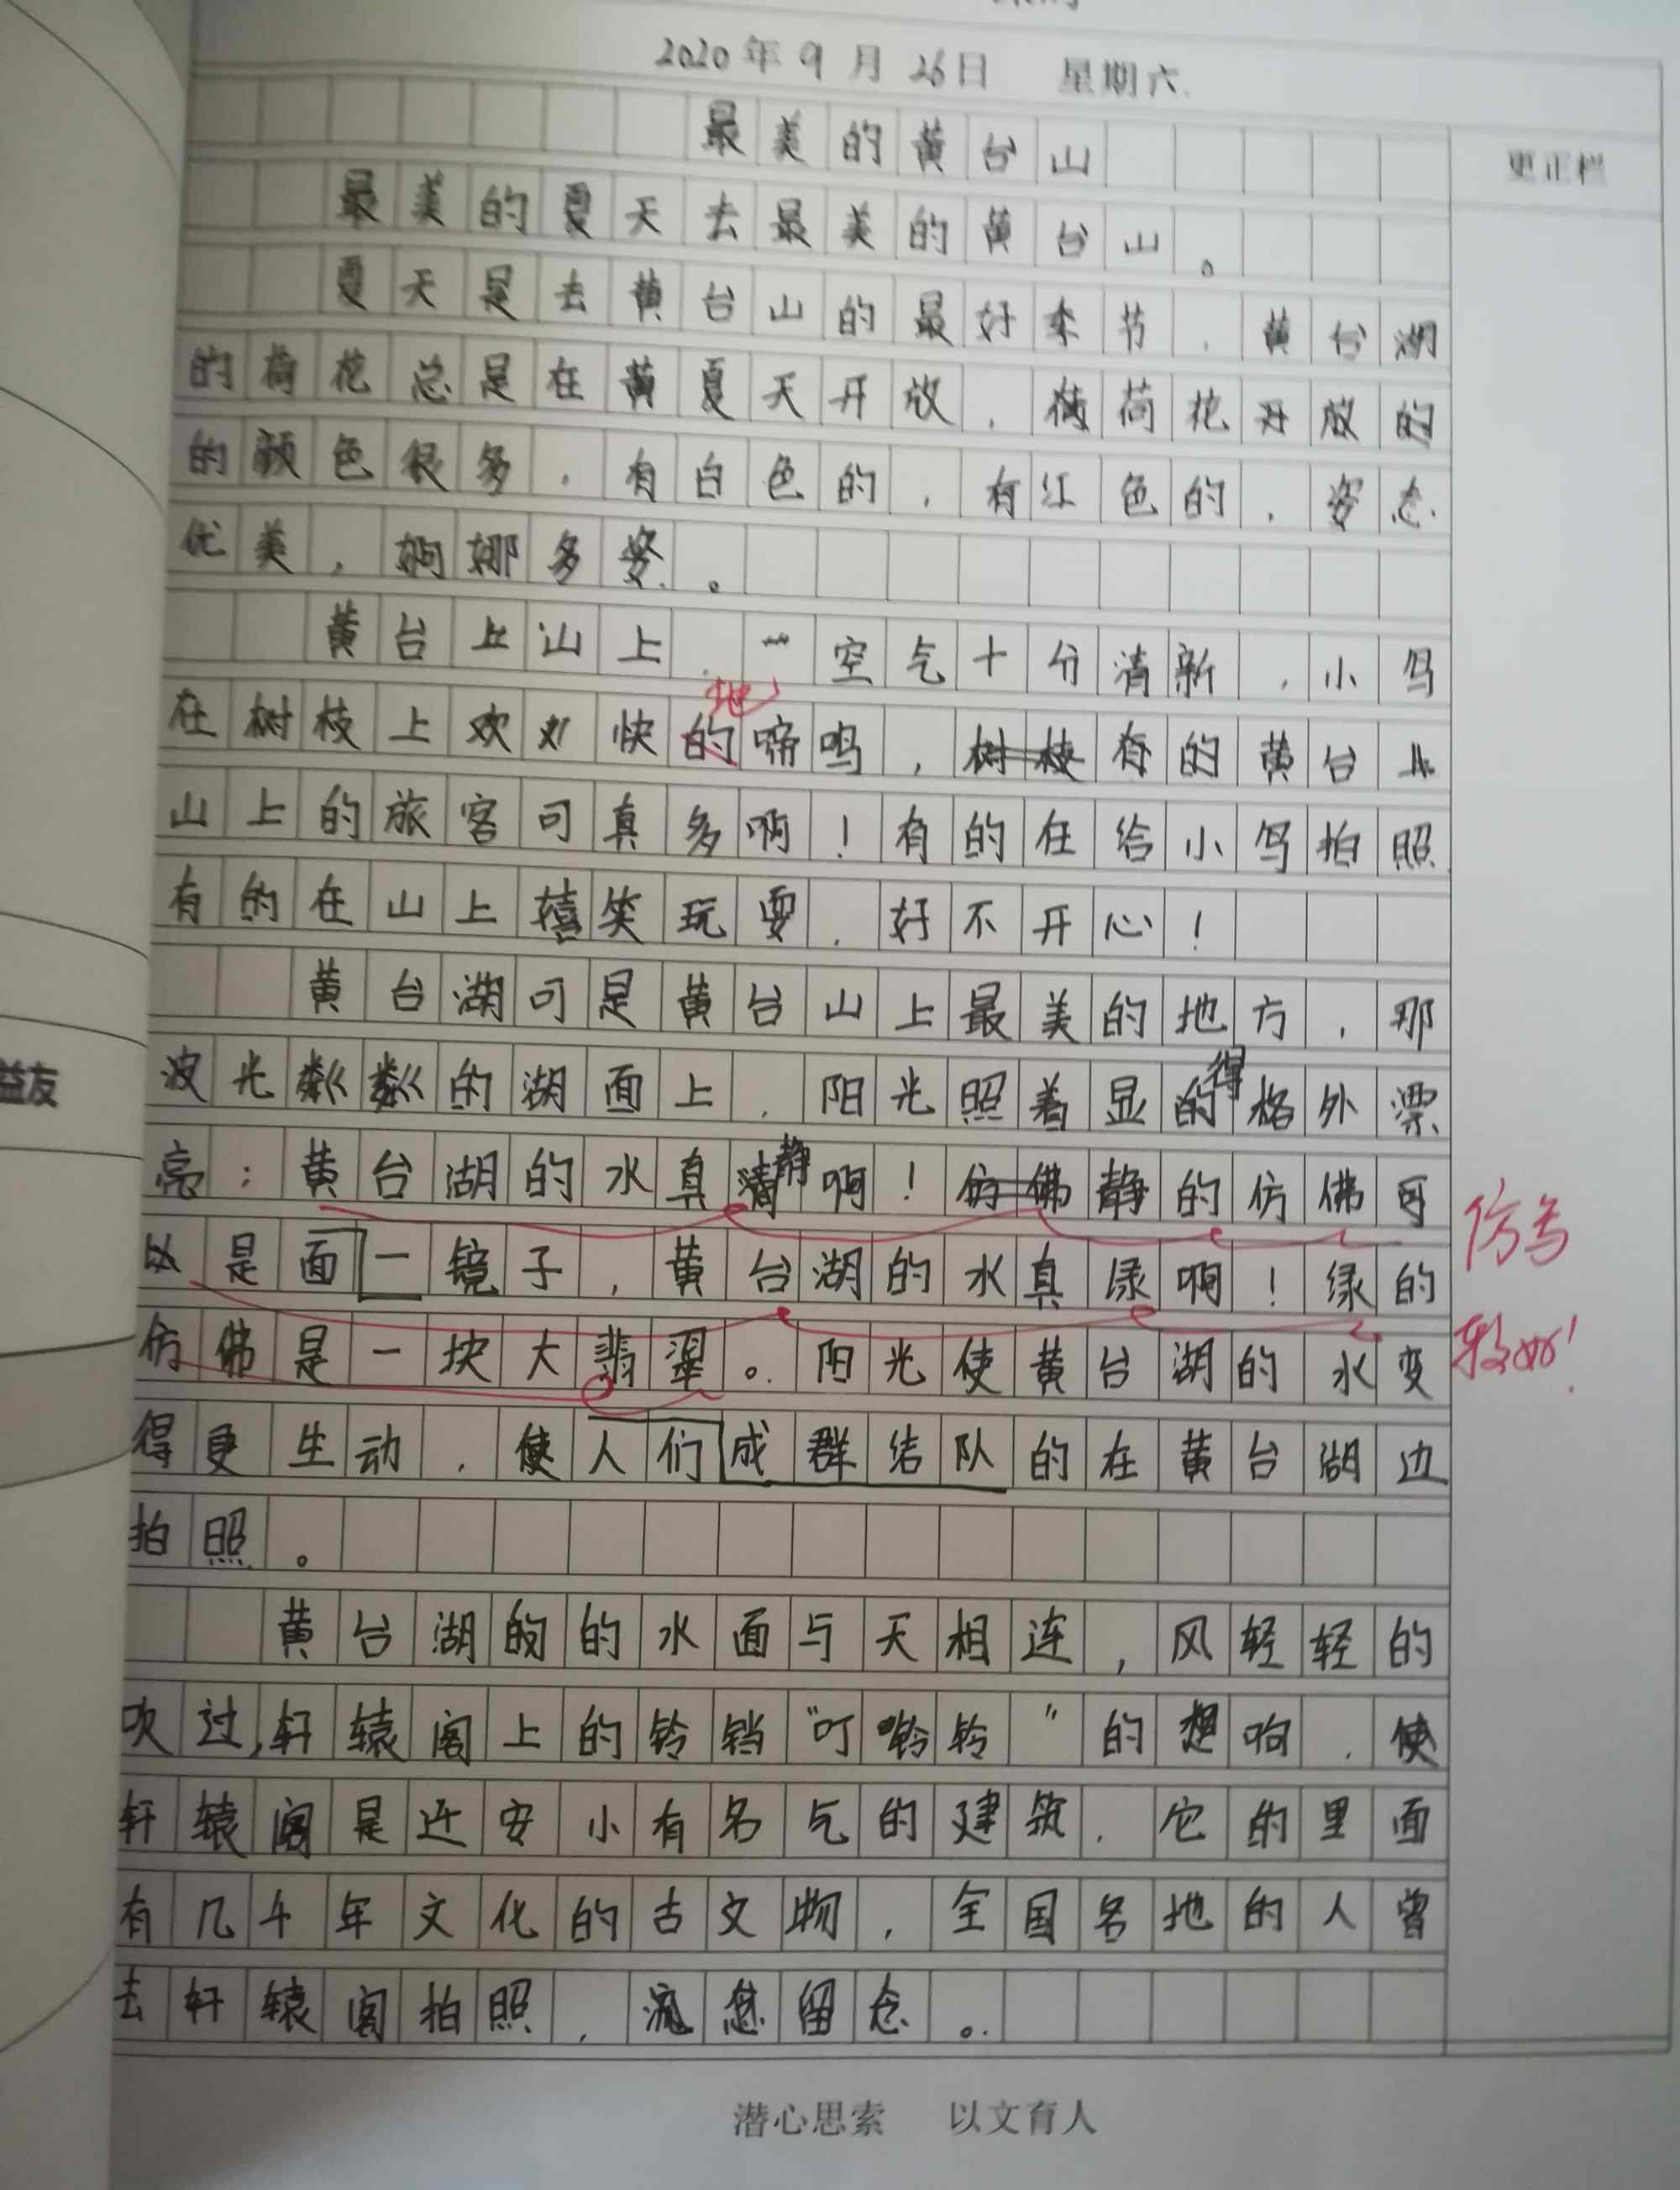 2020年9月26日 星期六
最美的黄台山
更正栏
最美的夏天去最美的黄台山。
夏天是去黄台山的最好季节,黄台湖
的荷花总是在黄夏天开放,荷花开放的
的颜色很多,有白色的,有红色的,姿态
优美,婀娜多姿。
黄台上山上,空气十分清新,小鸟
在树枝上欢快的啼鸣,树枝有的黄台
地
山上的旅客可真多啊!有的在给小鸟拍照
有的在山上嘻笑玩耍,好不开心!
黄台湖可是黄台山上最美的地方,那
波光粼粼的湖面上,阳光照着显的格外漂
得
亮:黄台湖的水真清啊!仿佛静的仿佛可
静
以是面一镜子,黄台湖的水真绿啊!绿的
仿佛是一块大翡翠。阳光使黄台湖的水变
仿写
较好!
得更生动,使人们成群结队的在黄台湖边
拍照。
黄台湖的的水面与天相连,风轻轻的
吹过,轩辕阁上的铃铛“叮铃铃”的想响,使
轩辕阁是迁安小有名气的建筑,它的里面
有几千年文化的古文物,全国各地的人曾
去轩辕阁拍照,流念留念。
潜心思索 以文育人
益友